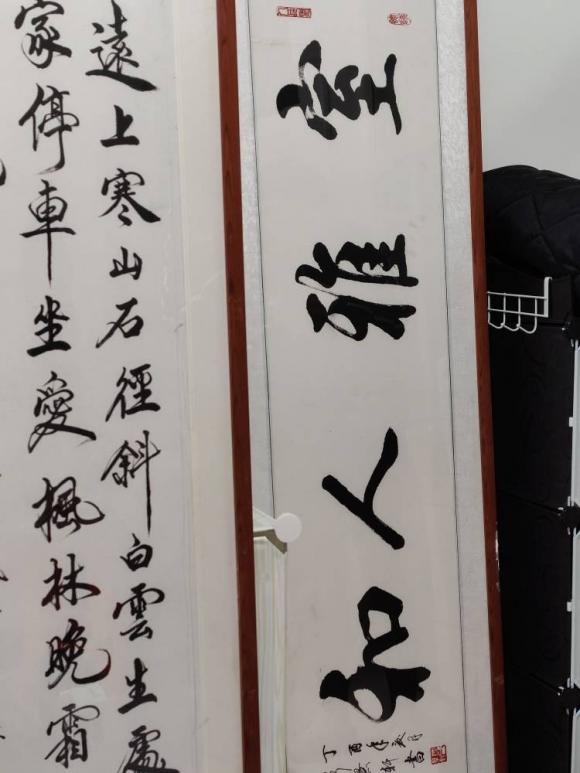 室雅人和
丁酉年
遠上寒山石徑斜白雲生處
家停車坐愛楓林晚霜